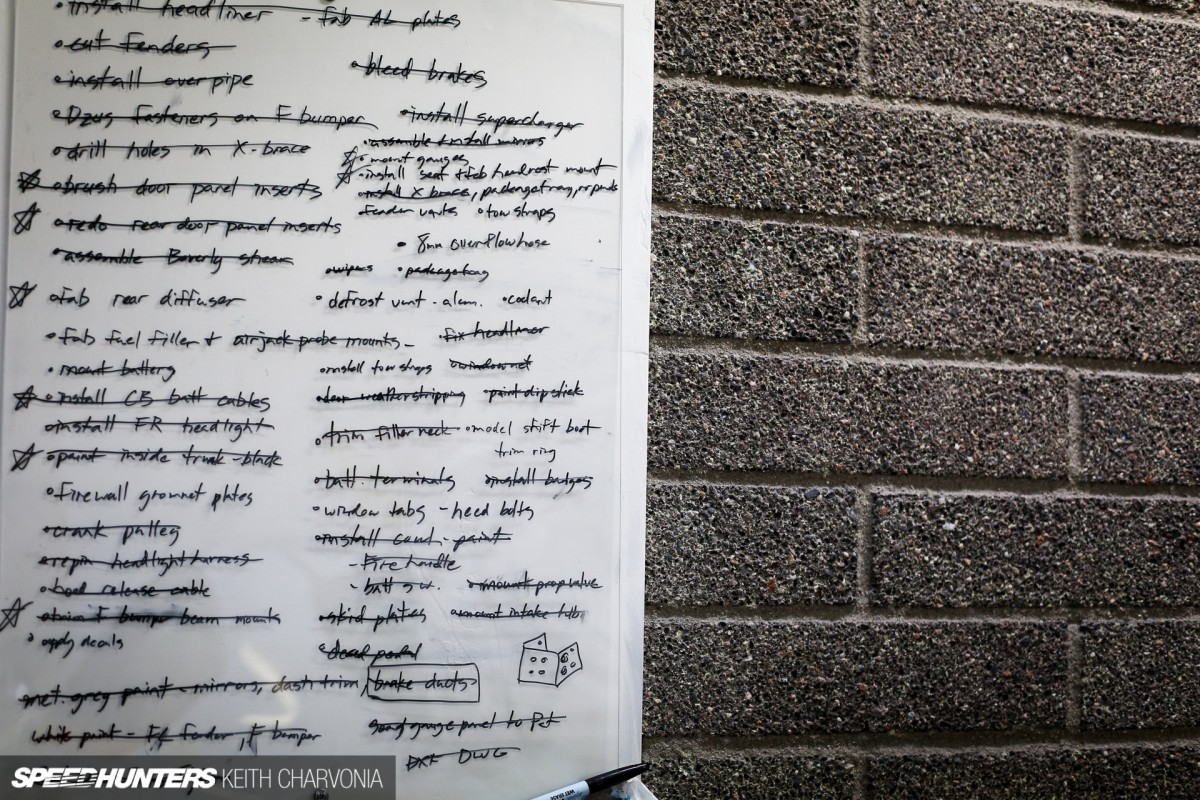 •install headliner - fab AL plates
•cut fenders
•install overpipe
•Dzus fasteners on F bumper
•drill holes in X-brace
•brush door panel inserts
•redo rear door panel inserts
•assemble Beverly shear
•fab rear diffuser
•fab fuel filler + airjack probe mounts-
•mount battery
•install CB batt cables
•install FR headlight
•paint inside trunk - black
•Firewall grommet plates
•crank pulley
•repin headlight harness
•hood release cable
F bumper beam mounts
•apply decals
met. grey paint - mirrors, dash trim, brake ducts
white paint - fender, F bumper
•bleed brakes
•install supercharger
•assemble + install mirrors
•mount gauges
•install seat + fab headrest mount
install X brace,
fender vents •tow straps
• 8mm overflow hose
•wipers •package tray
•defrost vent - alum. •coolant
•fix headliner
•install tow straps •window net
•door weatherstripping •paint dipstick
•trim filler neck •model shift boot
trim ring
•batt. terminals •install badges
•window tabs - need bolts
•install - paint
- Fire handle
- batt sw. •mount prop valve
•skid plates •mount intake tube
•dead pedal
send gauge panel to
DXF DWG
WET ERASE
SPEEDHUNTERS KEITH CHARVONIA